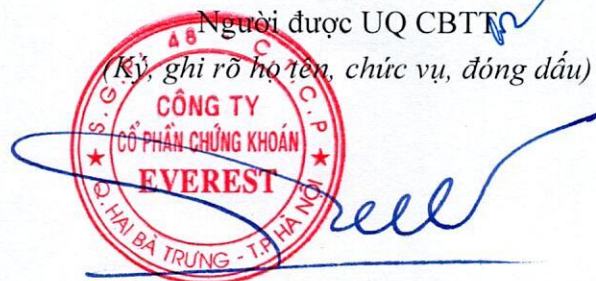 Người được UQ CBTT
(Ký, ghi rõ họ tên, chức vụ, đóng dấu)
S.G.P: 48 C.T.C.P
CÔNG TY
CỔ PHẦN CHỨNG KHOÁN
EVEREST
Q. HAI BÀ TRƯNG - T.P HÀ NỘI